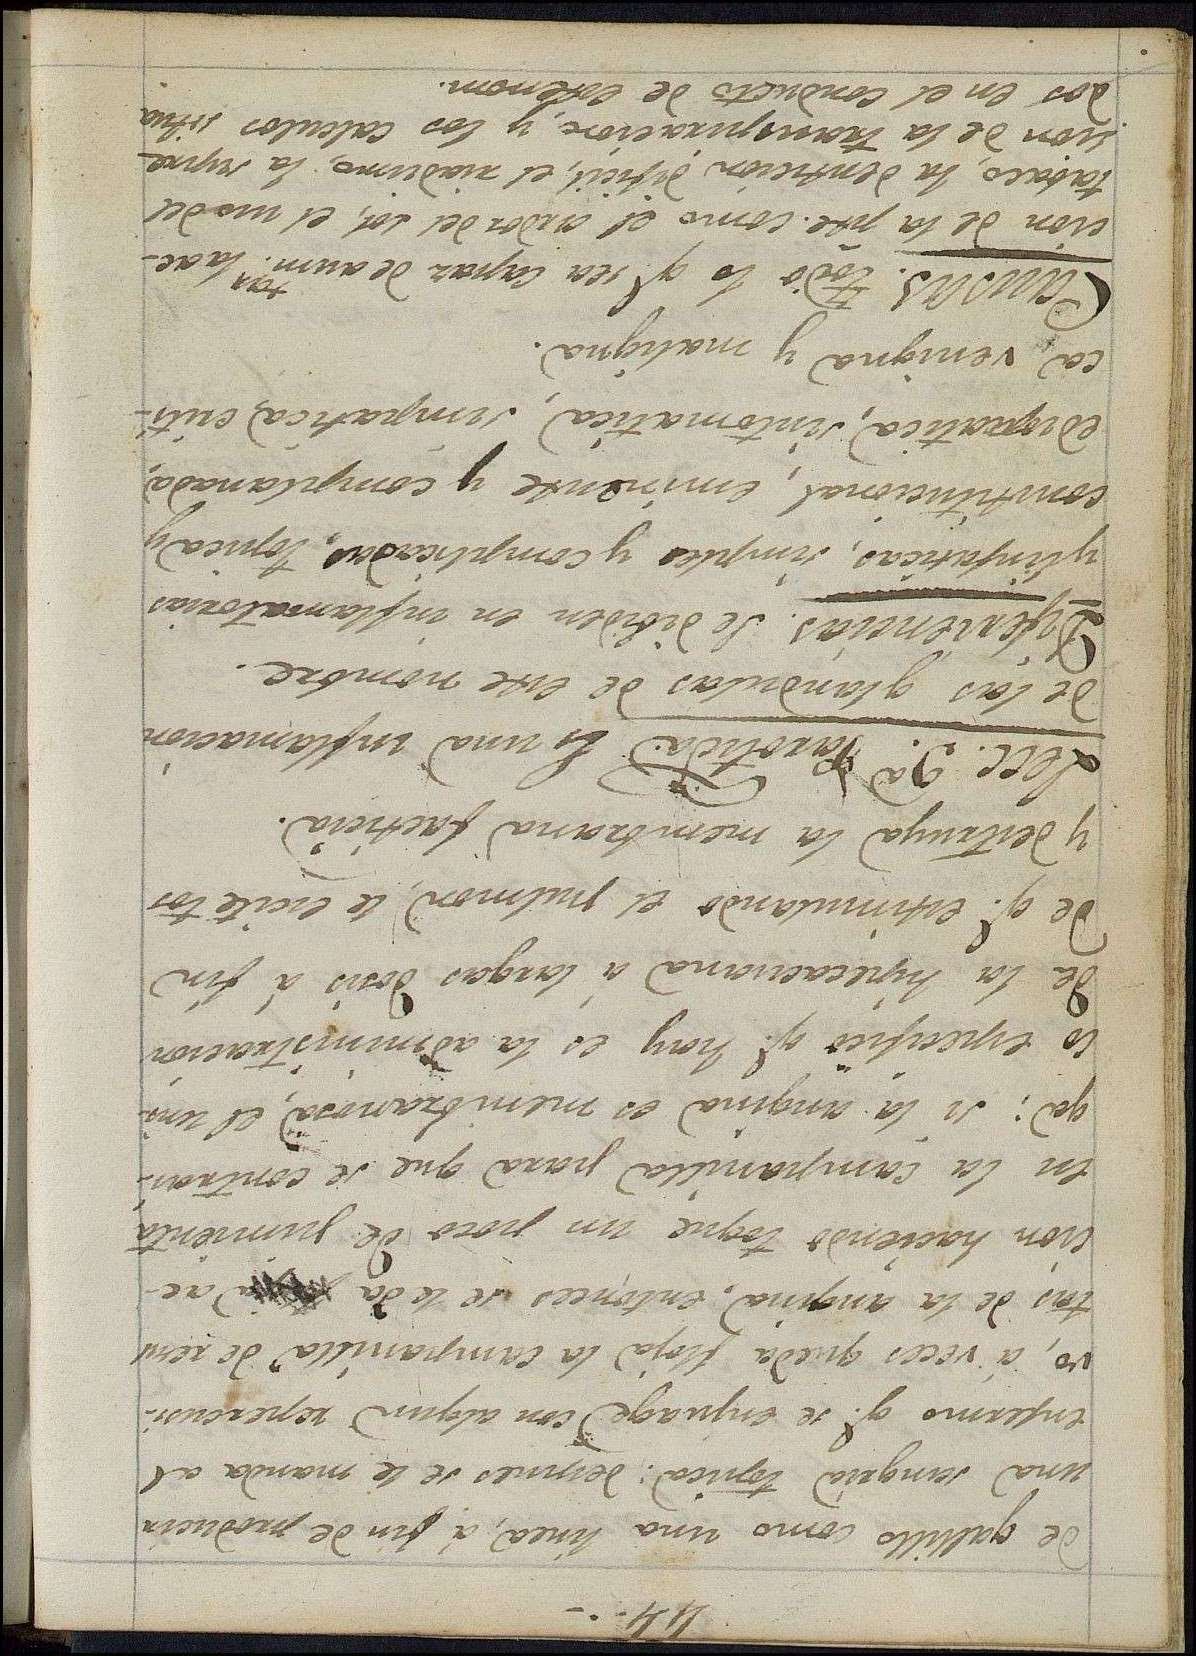 44.-
de gallillo como una linea, á fin de producir
una sangria topica: despues se le manda al
enfermo q.e se enjuage con algun repercusi-
vo, á veces queda floja la campanilla de resul
tas de la angina, entonces se le da ac-
cion haciendo toque un poco de pimienta
en la campanilla para que se contrai-
ga; si la angina es membranosa, el uni-
co especifico q.e hay es la administracion
de la hipecacuana á largas dosis á fin
de q.e estimulando el pulmon, le ecsite tos
y destruya la membrana facticia.
Lecc. 9a Parotida. Es una inflamacion
de las glandulas de este nombre.
Diferencias. Se dibiden en inflamatorias
y linfaticas, simples y complicadas, topica y
constitucional, eminente y complanada,
ediopatica, sintomatica, simpatica, criti-
ca, venigna y maligna.
Causas. Todo lo q.e sea capaz de aum.tar la ac-
cion de la pte. como el ardor del sol, el uso del
tabaco, la denticion dificil, el tialismo, la supre-
sion de la transpiracion, y los calculos situa
dos en el conducto de estenon.